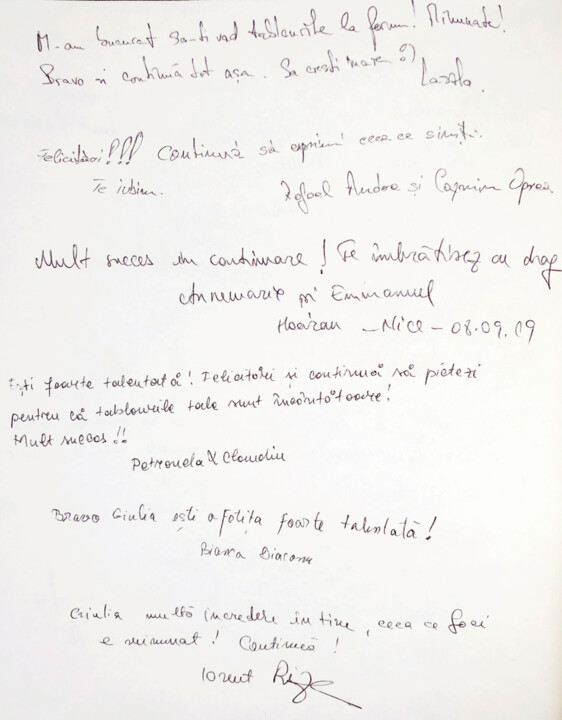 M-am bucurat să-ți văd tablourile la fermă! Minunate!
Bravo și continuă tot așa. Să crești mare :)
Laszlo.
Felicitări!!! Continuă să exprimi ceea ce simți.
Te iubim.
Rafael Andrea și Casmin Oprea
Mult succes în continuare! Te îmbrățișez cu drag
Annemarie și Emmanuel
– Nice – 08.09.19
Ești foarte talentată! Felicitări și continuă să pictezi
pentru că tablourile tale sunt încântătoare!
Mult succes!!
Petronela & Claudiu
Bravo Giulia ești o fetița foarte talentată!
Bianca Diaconu
Giulia multă încredere în tine, ceea ce faci
e minunat! Continuă!
Ionut